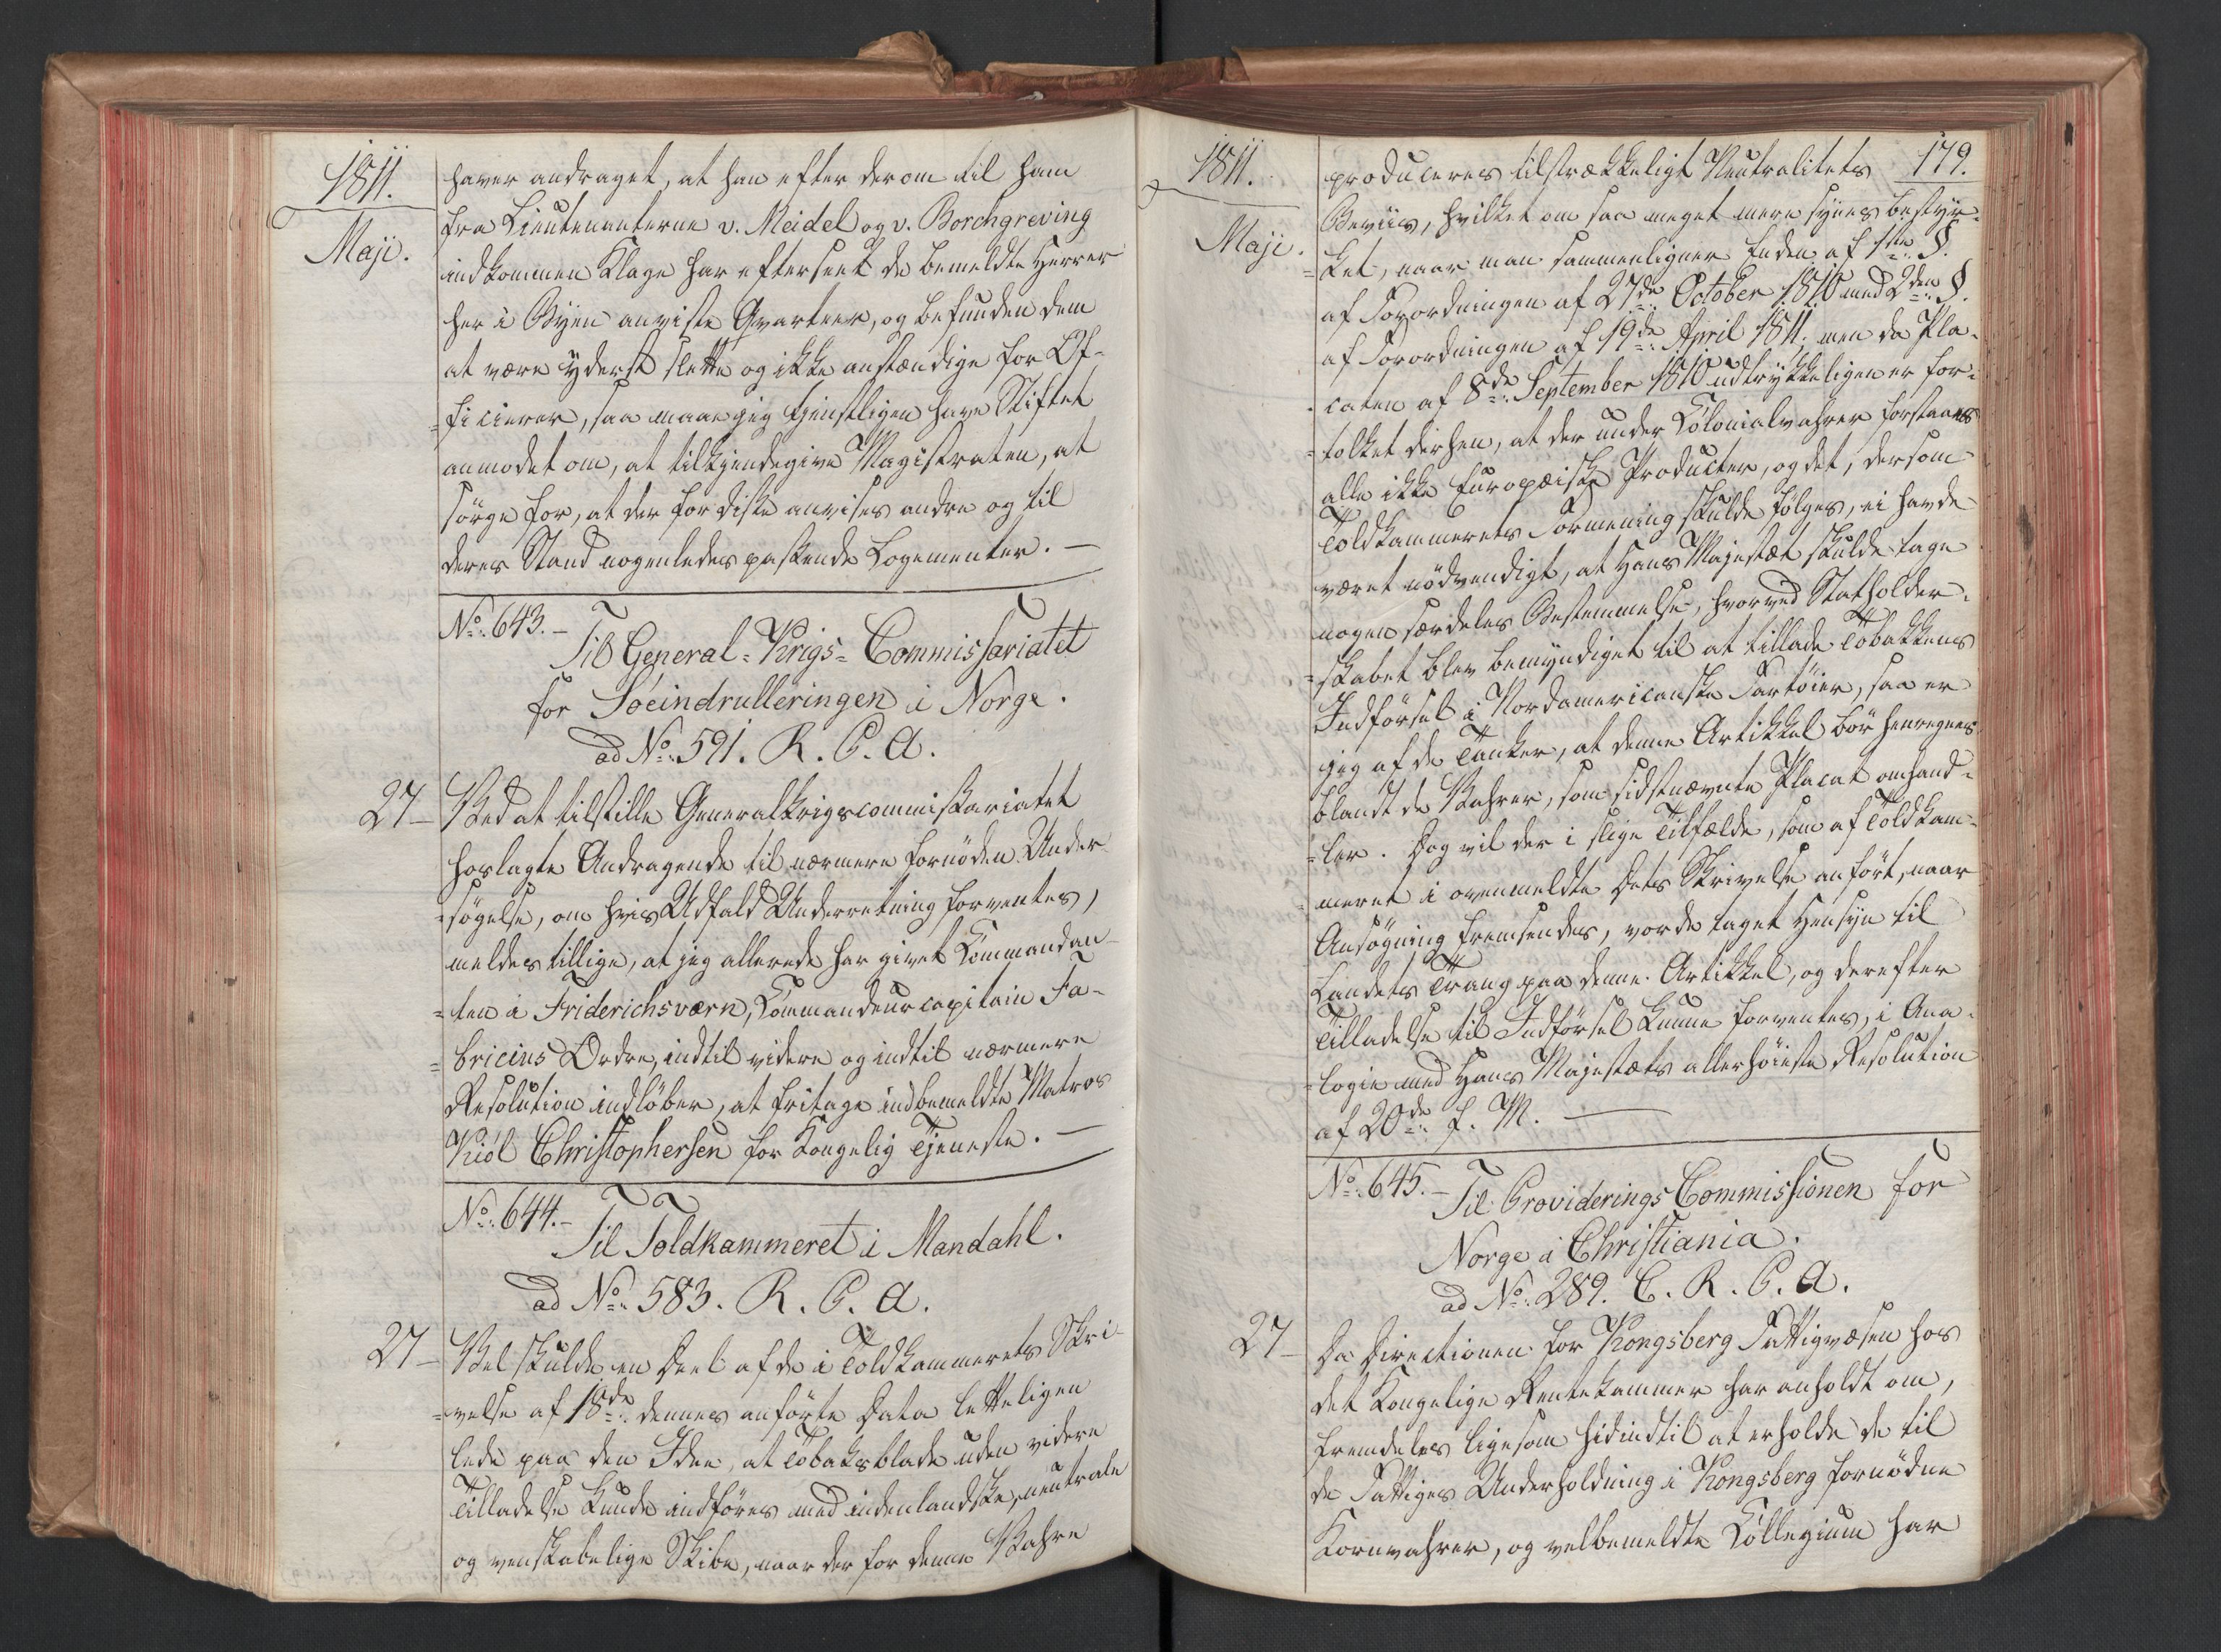 1811.
Maji.
haver andraget, at han efter derom til ham
fra Lieutenanterne v. Meidel og v. Borchgreving
indkommen Klage har efterseet de bemeldte Herrer
her i Byen anviste Qvarteer, og befunden dem
at være yderst slette og ikke anstændige for Of-
=ficierer, saa maae jeg tjenstligen have Stiftet
anmodet om, at tilkjendegive Magistraten, at
sörge for, at der for diske anvises andre og til
deres Stand nogenledes passende Logementer. —
No. 643. — Til General=Krigs=Commissariatet
for Söeindrulleringen i Norge.
ad No. 591. R. C. A.
27 — Ved at tilstille Generalkrigscommissariatet
hoslagte Andragende til nærmere fornöden Under
=sögelse, om hvis Udfald Underretning forventes,
meldes tillige, at jeg allerede har givet Commandan-
=ten i Friderichsværn, Commandeurcapitain Fa-
=bricius Ordre, indtil videre og indtil nærmere
Resolution indlöber, at fritage indbemeldte Matros
Kiöl Christophersen for Kongelig Tjeneste. —
No. 644. — Til Toldkammeret i Mandahl.
ad No. 583. R. C. A.
27 — Vel skulde en Deel af de i Toldkammerets Skri-
=velse af 18de dennes anförte Data letteligen
lede paa den Idee, at Tobaksblade uden videre
Tilladelse kunde indföres med indenlandske, neutrale
og venskabelige Skibe, naar der for denne Vahre
1811.
Maji.
179.
produceres tilstrækkeligt Neutralitets
Beviis, hvilket om saa meget mere synes bestyr-
=ket, naar man sammenligner Enden af 1ste §.
af Forordningen af 27de October 1810 med 2den §.
af Forordningen af 19de April 1811; men da Pla-
caten af 8de September 1810 udtrykkeligen er for-
=tolket derhen, at der under Colonialvahrer forstaaes
alle ikke Europæiske Producter, og det, dersom
Toldkammerets Formening skulde fölges, ei havde
været nödvendigt, at Hans Majestæt skulde tage
nogen særdeles Bestemmelse, hvorved Statholder-
=skabet blev bemyndiget til at tillade Tobakkens
Indförsel i Nordamericanske Fartöier, saa er
jeg af de Tanker, at denne Artikkel bör henregnes
blandt de Vahrer, som sidstnævnte Placat omhand-
=ler. Dog vil der i slige Tilfælde, som af Toldkam-
=meret i ovenmeldte dets Skrivelse anfört, naar
Ansögning fremsendes, vorde taget Hensyn til
Landets Trang paa denne Artikkel, og derefter
Tilladelse til Indförsel kunne forventes, i Ana-
=logie med Hans Majestæts allerhöieste Resolution
af 20de f. M. —
No. 645. — Til ProvideringsCommissionen for
Norge i Christiania.
ad No. 289. C. R. C. A.
27 — Da Directionen for Kongsberg Fattigvæsen hos
det Kongelige Rentekammer har anholdt om,
fremdeles ligesom hidindtil at erholde de til
de Fattiges Underholdning i Kongsberg fornödne
Kornvahrer, og velbemeldte Collegium har